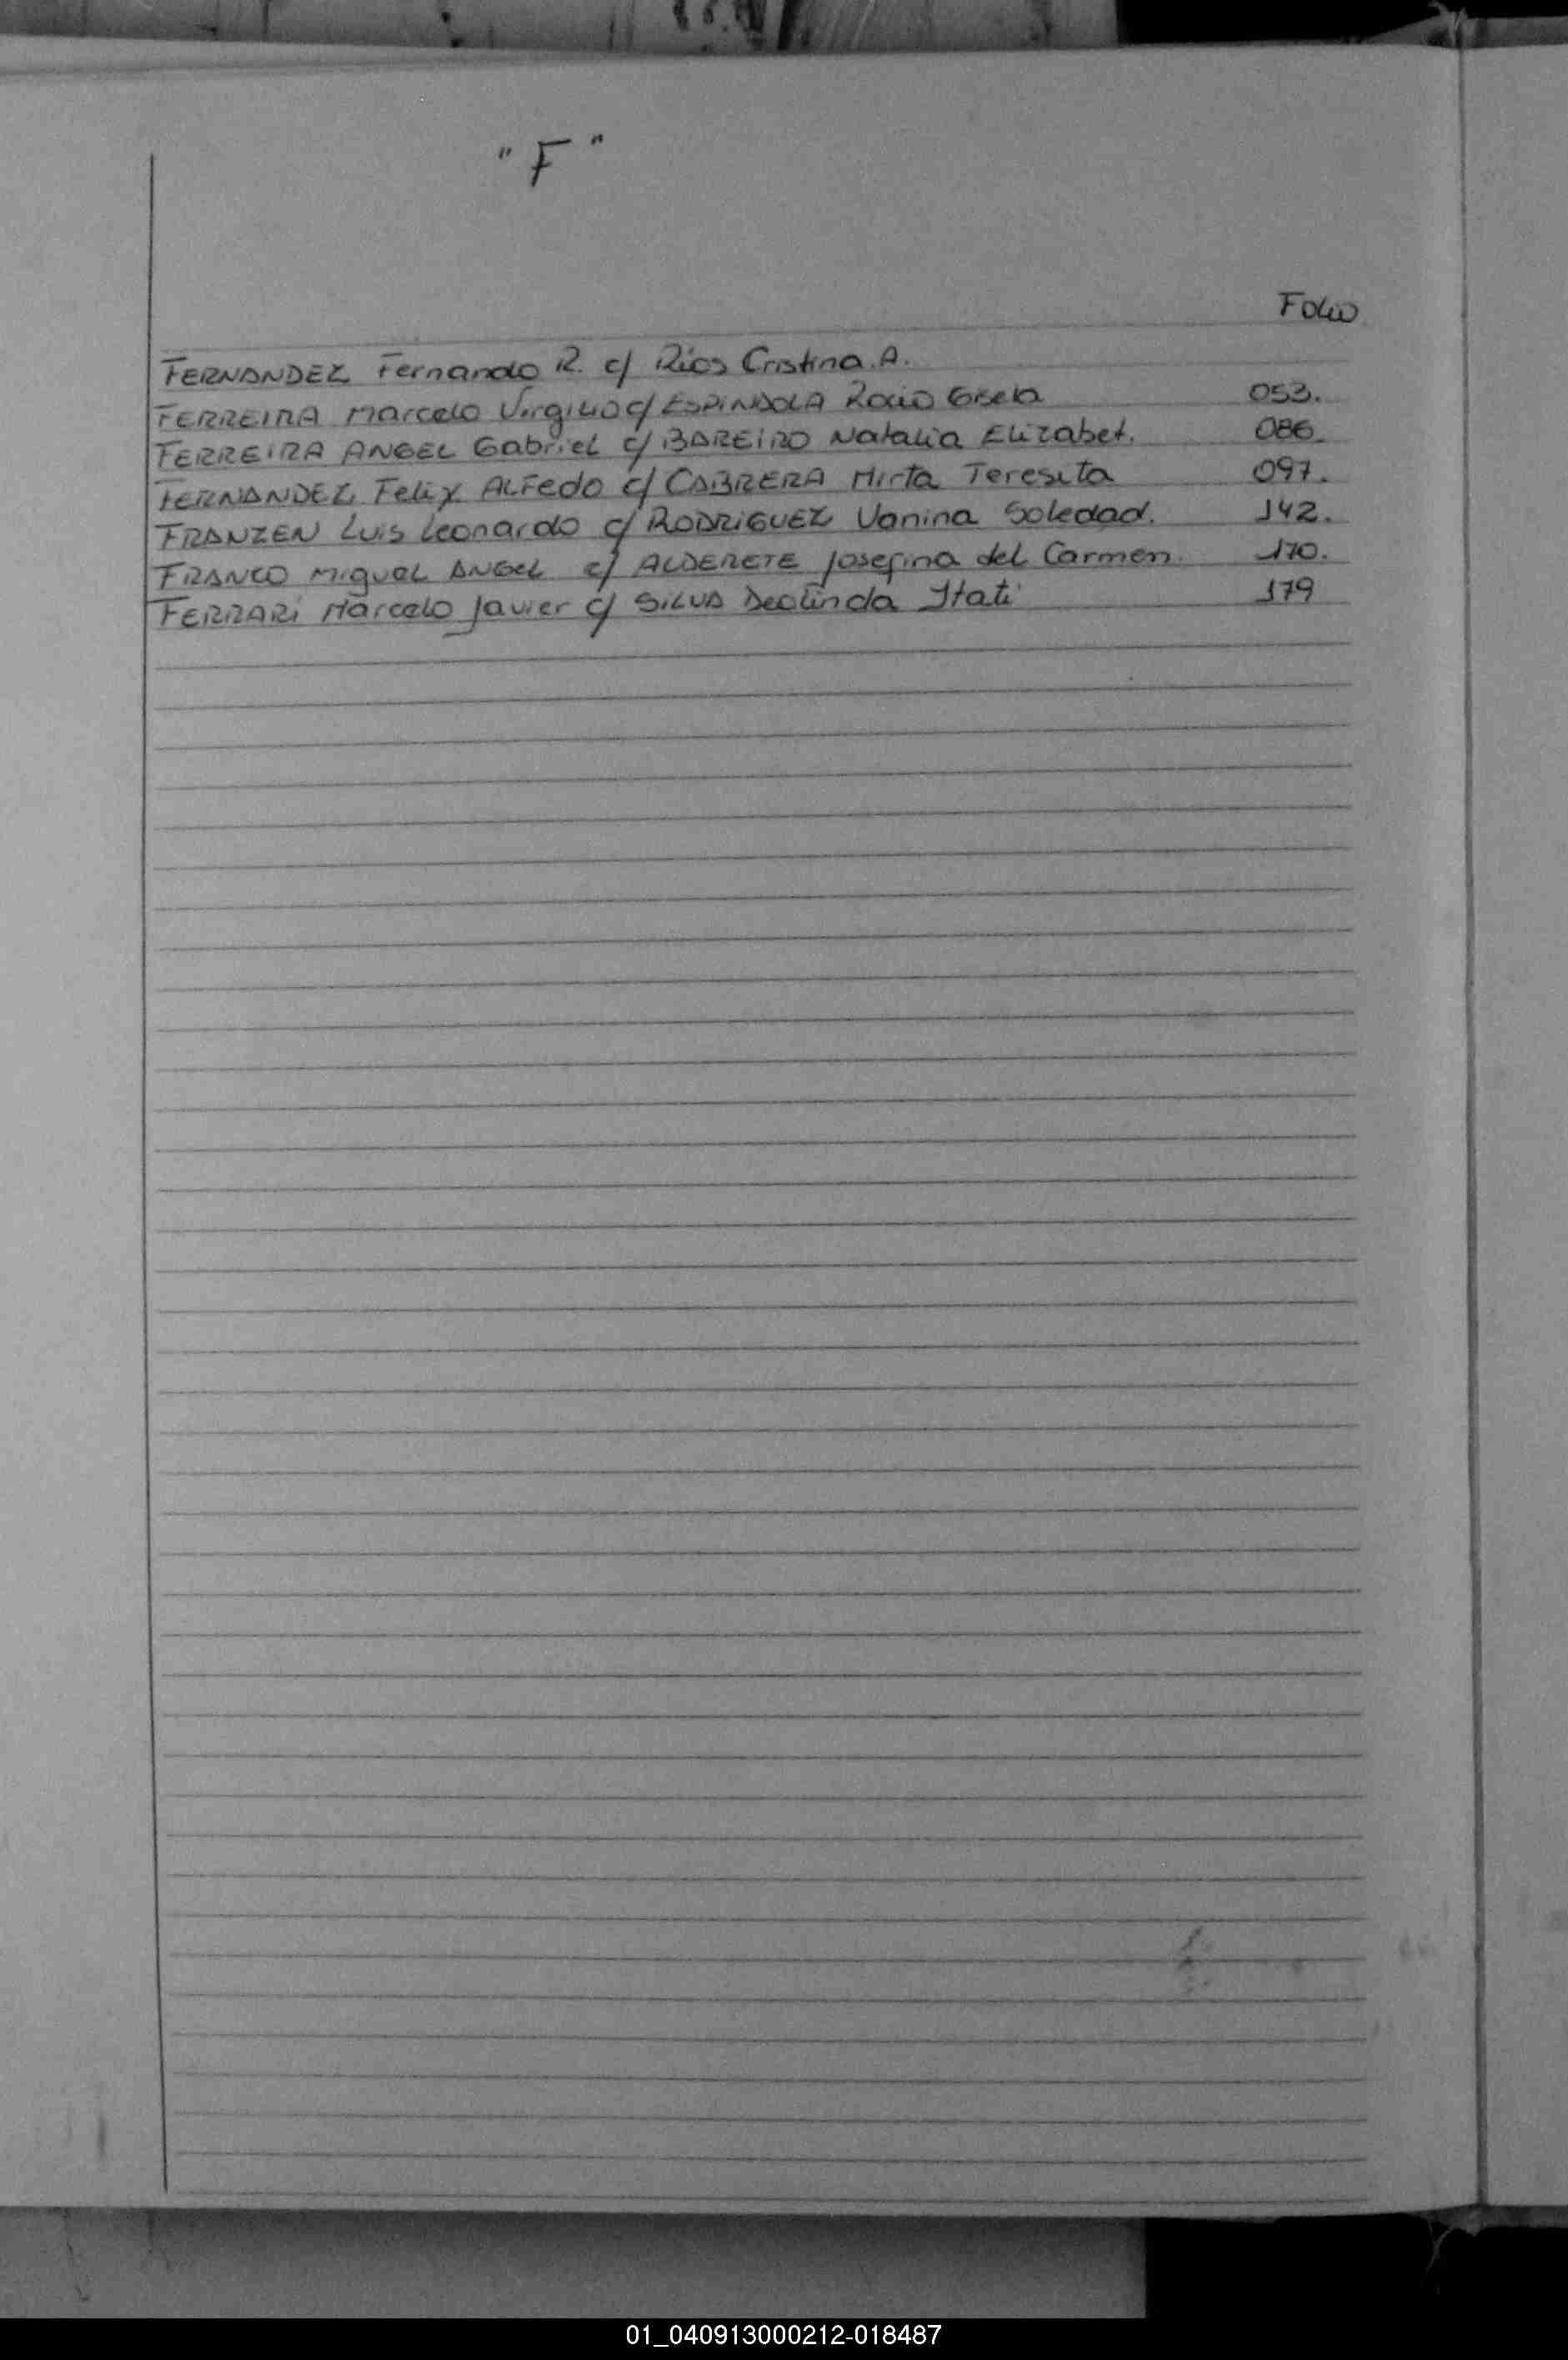 "F"
Folio
FERNANDEZ Fernando R. c/ Rios Cristina. A.
FERREIRA Marcelo Virgilio c/ ESPINDOLA Rocio Gisela 053.
FERREIRA ANGEL Gabriel c/ BAREIRO Natalia Elizabet. 086.
FERNANDEZ Felix Alfedo c/ CABRERA Mirta Teresita 097.
FRANZEN Luis Leonardo c/ RODRIGUEZ Vanina Soledad. 142.
FRANCO Miguel ANGEL c/ ALDERETE Josefina del Carmen. 170.
FERRARI Marcelo Javier c/ SILVA Deolinda Itati 179
01_040913000212-018487